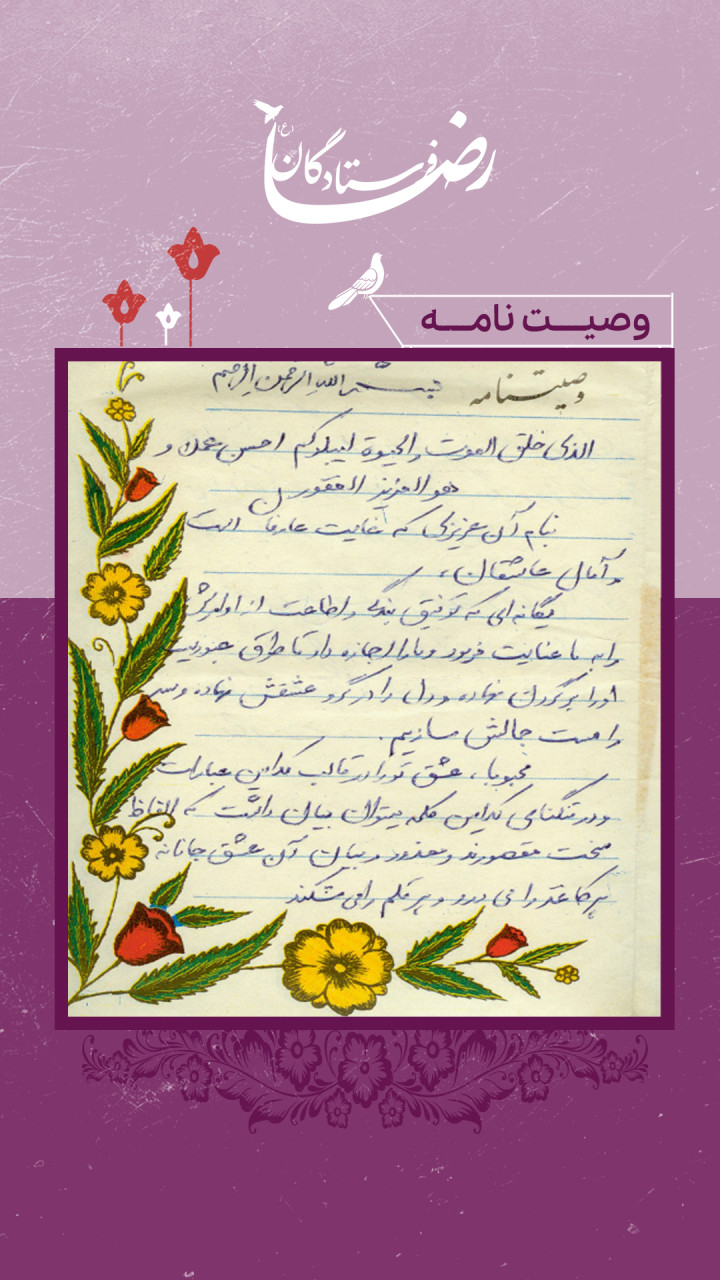 فرستادگان رضا (ع)
وصیت نامه
وصیتنامه بسم الله الرحمن الرحیم
الذی خلق الموت والحیوة لیبلوکم احسن عملا و
هو العزیز الغفور
بنام آن عزیزی که غایت عارفان است
و آمال عاشقان،
یگانه‌ای که توفیق بندگی و اطاعت از اوامرش
را به ما عنایت فرمود و ما را اجازه داد تا طوق عبودیت
او را بر گردن نهاده و دل را در گرو عشقش نهاده و سر
را مست جمالش سازیم.
محبوبا، عشق تو را در قالب کدامین عبارات
و در تنگنای کدامین کلمه میتوان بیان داشت که الفاظ
سخت مقصورند و معذور در بیان آن عشق جانانه
که کاغذ را می درد و پر قلم را می شکند